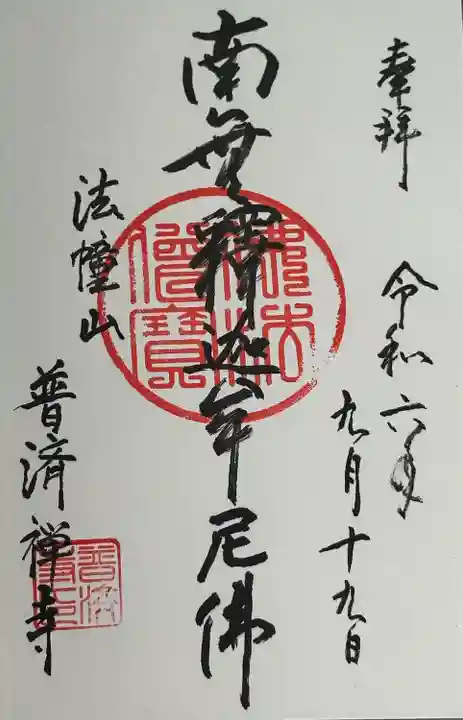 奉拝
令和六年
九月十九日
南無釋迦牟尼佛
法幢山
普済禅寺